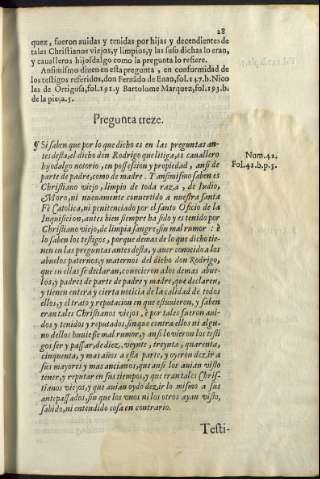 28
quez, fueron auidas y tenidas por hijos y decendientes de
tales Christianos viejos, y limpios, y las suso dichas lo eran,
y caualleros hijosdalgo como la pregunta lo refiere.
Ansimismo dizen en esta pregunta, en conformidad de
los testigos referidos, don Fernãdo de Enao, fol. 147. b. Nico
las de Ortigosa, fol. 191. y Bartolome Marquez, fol. 193. b.
de la pieç. 5.
Pregunta treze.
Y Si saben que por lo que dicho es en las preguntas an-
tes desta, el dicho don Rodrigo que litiga, es cauallero
hijodalgo notorio, en possession y propiedad, ansi de
parte de padre, como de madre. Y ansimismo saben es
Christiano viejo, limpio de toda raza, de Iudio,
Moro, ni nueuamente conuertido a nuestra santa
Fè Catolica, ni penitenciado por el santo Oficio de la
Inquisicion, antes bien siempre ha sido y es tenido por
Christiano viejo, de limpia sangre, sin mal rumor: è
lo saben los testigos, porque demas de lo que dicho tie-
nen en las preguntas antes desta, y auer conocido a los
abuelos paternos, y maternos del dicho don Rodrigo,
que en ellas se declaran, conocieron a los demas abue-
los, y padres de parte de padre y madre, que declaren,
y tienen entera y cierta noticia de la calidad de todos
ellos, y el trato y reputacion en que estuuieron, y saben
eran tales Christianos viejos, è por tales fueron aui-
dos y tenidos y reputados, sin que contra ellos ni algu-
no dellos huuiesse mal rumor, y ansi lo vieron los testi
gos ser y passar, de diez, veynte, treynta, quarenta,
cinquenta, y mas años a esta parte, y oyeron dezir a
sus mayores y mas ancianos, que ansi los auian visto
tener, y reputar en sus tiempos, y que eran tales Chris-
tianos viejos, y que auian oydo dezir lo mismo a sus
antepassados, sin que los vnos ni los otros ayan visto,
sabido, ni entendido cosa en contrario.
Num. 42.
Fol. 42. b. p. 5.
Testi-